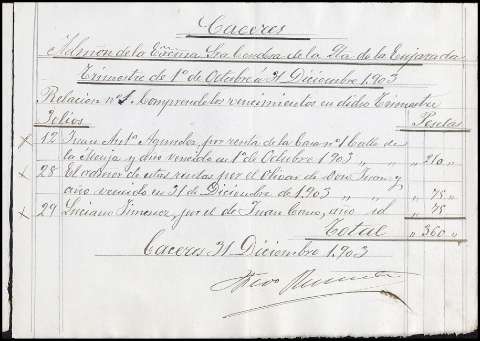 Caceres
Admon de la Excma Sra Condesa de la Va de la Enjarada
Trimestre de 1º de Octubre a 31 Diciembre 1.903
Relacion nº 1 Comprende los vencimientos en dicho Trimestre
Folios. Pesetas
12 Juan Antº por renta de la Casa nº 1 Calle de
la Monja y año vencido en 1º de Octubre 1903 " " " 210 "
28 El de estas rentas por el Olivar de Don Juan y
año vencido en 31 de Diciembre de 1903 " " 75 "
29 Luciano Jimenez, por el de Juan Cano, año id " 75
Total " 360 "
Caceres 31 Diciembre 1.903